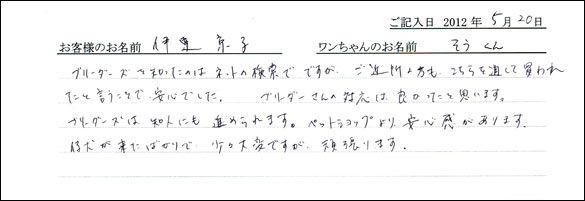 ご記入日 2012年 5月 20日
お客様のお名前 伊東 京子 ワンちゃんのお名前 そうくん
ブリーダーズを知ったのはネットの検索でですが、ご近所の方も、こちらを通して買われ
たと言うことで、安心でした。 ブリーダーさんの対応は良かったと思います。
ブリーダーズは知人にも進められます。ペットショップより安心感があります。
仔犬が来たばかりで、少々大変ですが、頑張ります。